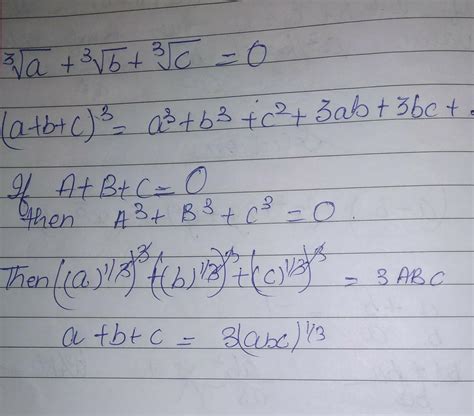 ∛a + ∛b + ∛c = 0
(a+b+c)³ = a³+b³+c²+3ab+3bc+
If A+B+C=0
then A³+B³+C³=0.
Then ((a)^1/3)³+((b)^1/3)³+((c)^1/3)³ = 3ABC
a+b+c = 3(abc)^1/3